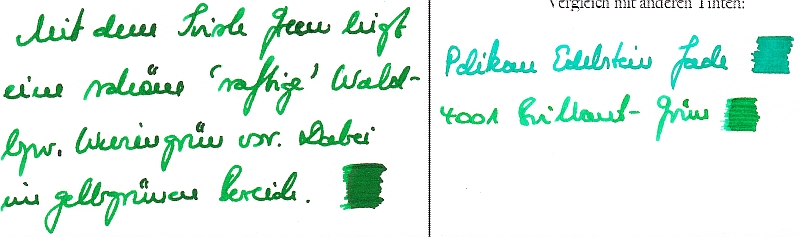 Mit dem Irish Green liegt
eine schöne 'saftige' Wald-
bzw. Wiesengrün vor. Dabei
im gelbgrünen Bereich.
Vergleich mit anderen Tinten:
Pelikan Edelstein Jade
4001 Brillant-Grün